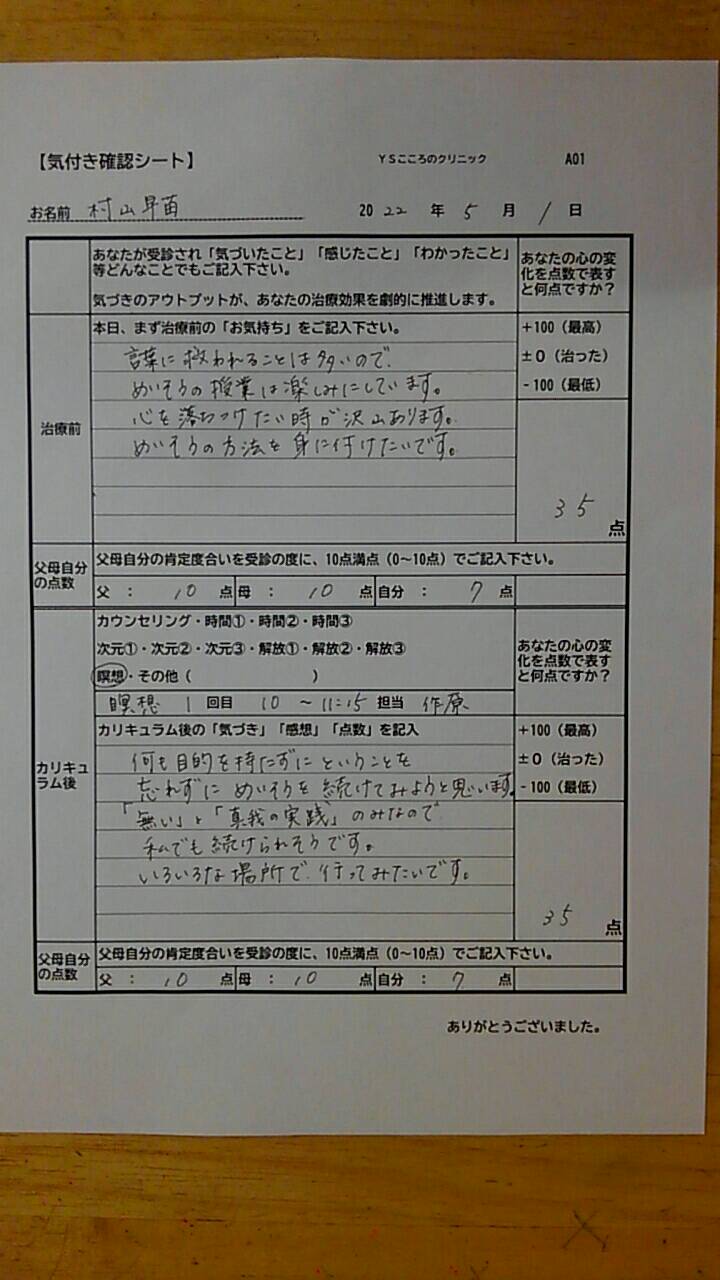 【気付き確認シート】 YSこころのクリニック A01
お名前 村山早苗 2022年5月1日
あなたが受診され「気づいたこと」「感じたこと」「わかったこと」
等どんなことでもご記入下さい。
気づきのアウトプットが、あなたの治療効果を劇的に推進します。
あなたの心の変
化を点数で表す
と何点ですか？
治療前
本日、まず治療前の「お気持ち」をご記入下さい。
言葉に救われることは多いので、
めいそうの授業は楽しみにしています。
心を落ちつけたい時が沢山あります。
めいそうの方法を身に付けたいです。
+100（最高）
±0（治った）
-100（最低）
35点
父母自分
の点数
父母自分の肯定度合いを受診の度に、10点満点（0〜10点）でご記入下さい。
父：10点 母：10点 自分：7点
カリキュ
ラム後
カウンセリング・時間①・時間②・時間③
次元①・次元②・次元③・解放①・解放②・解放③
瞑想・その他（ ）
瞑想 1回目 10〜11:15 担当 作原
あなたの心の変
化を点数で表す
と何点ですか？
カリキュラム後の「気づき」「感想」「点数」を記入
何も目的を持たずにということを
忘れずにめいそうを続けてみようと思います。
「無い」と「真我の実践」のみなので
私でも続けられそうです。
いろいろな場所で、行ってみたいです。
+100（最高）
±0（治った）
-100（最低）
35点
父母自分
の点数
父母自分の肯定度合いを受診の度に、10点満点（0〜10点）でご記入下さい。
父：10点 母：10点 自分：7点
ありがとうございました。